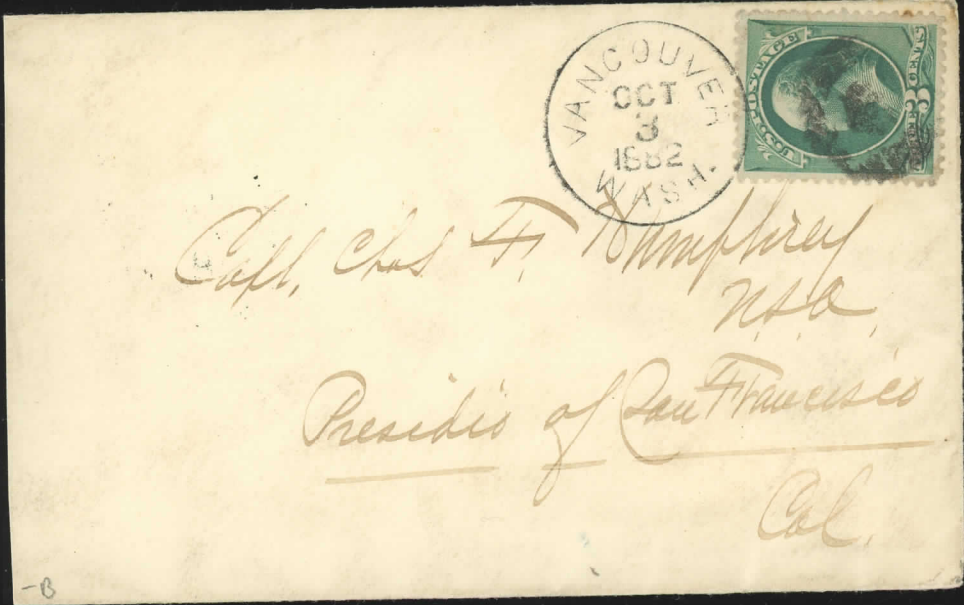 VANCOUVER
OCT
3
1882
WASH.
U.S. POSTAGE
3
Capt. Chas F. Humphrey
U.S.A.
Presidio of San Francisco
Cal.
-B